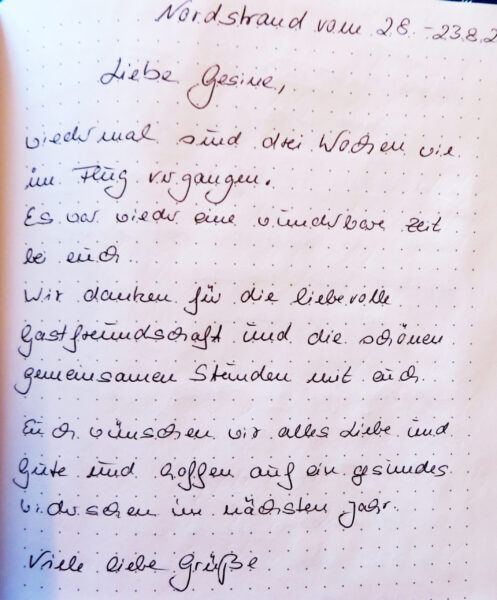 Nordstrand vom 2.8. - 23.8.2
Liebe Gesine,
wieder mal sind drei Wochen wie
im Flug vergangen.
Es war wieder eine wunderbare Zeit
bei euch.
Wir danken für die liebevolle
Gastfreundschaft und die schönen
gemeinsamen Stunden mit euch.
Euch wünschen wir alles Liebe und
Gute und hoffen auf ein gesundes
Wiedersehen im nächsten Jahr.
Viele liebe Grüße